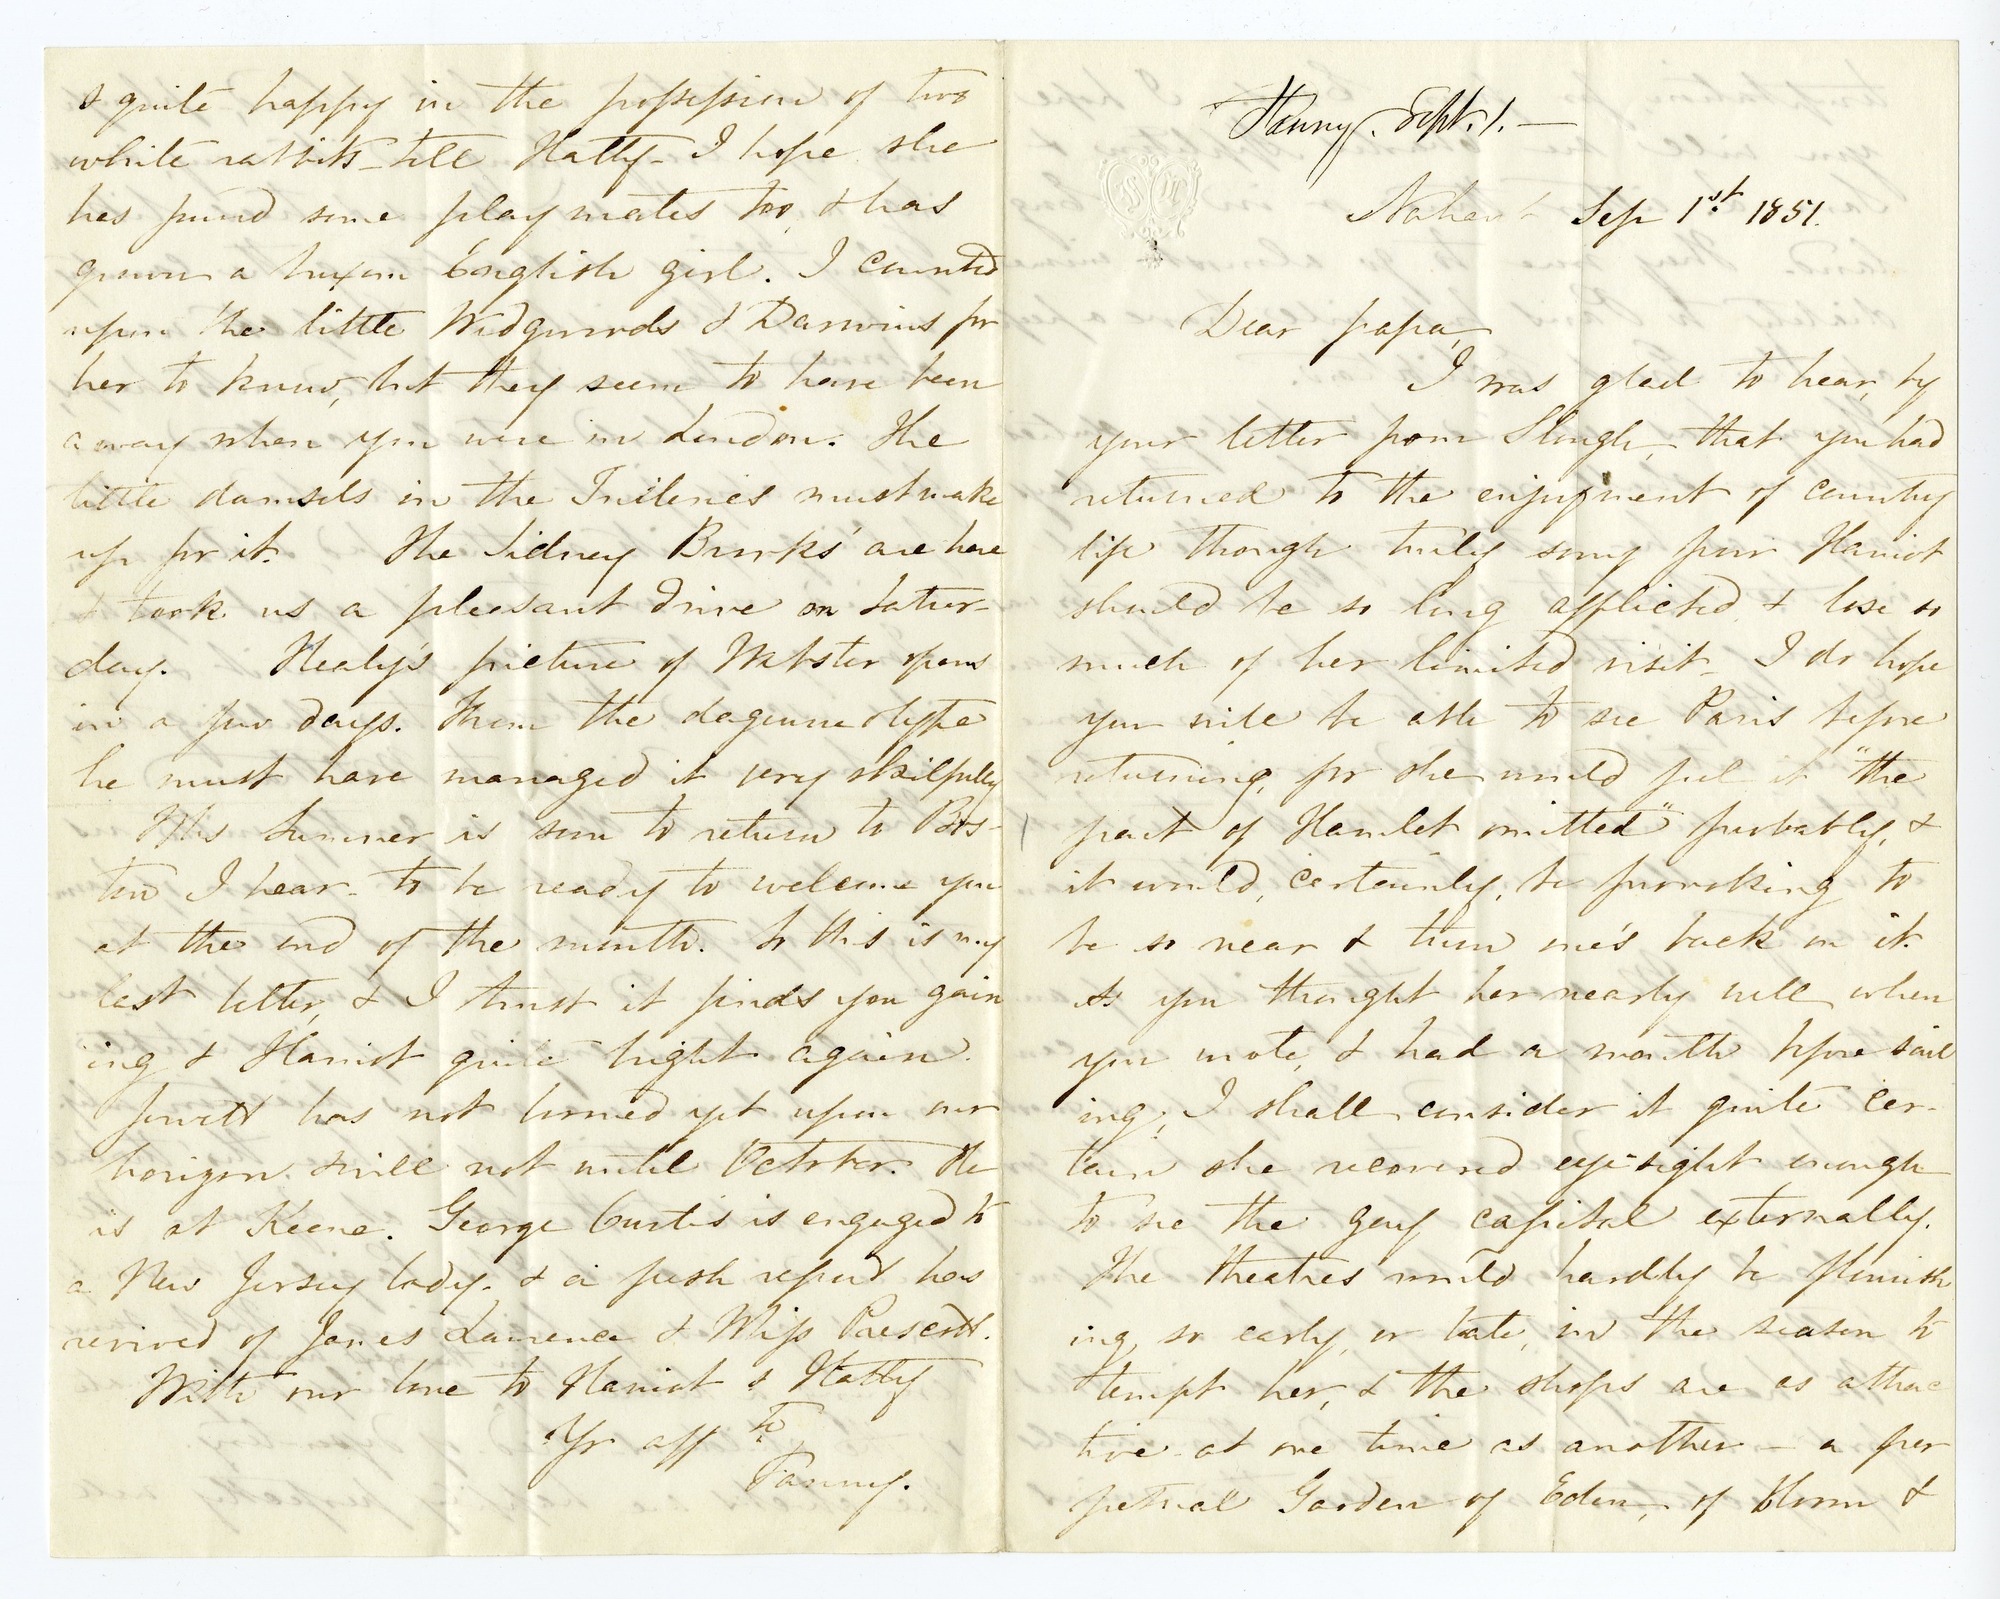 Fanny. Sept. 1.—
Nahant Sep 1st. 1851.
Dear Papa,
I was glad to hear, by
your letter from Slough, that you had
returned to the enjoyment of country
life though truly sorry poor Harriot
should be so long afflicted, & lose so
much of her limited visit. I do hope
you will be able to see Paris before
returning, for she would feel it "the
part of Hamlet omitted" probably, &
it would, certainly, be provoking to
be so near & turn one's back on it.
As you thought her nearly well when
you wrote, & had a month before sail
ing, I shall consider it quite cer-
tain she recovered eye-sight enough
to see the gay capital externally.
The theatres would hardly be flourish
ing, so early, or late, in the season to
tempt her, & the shops are as attrac
tive at one time as another – a per
petual Garden of Eden, of bloom &
& quite happy in the possession of two
white rabbits – tell Hatty – I hope she
has found some playmates too, & has
grown a buxom English girl. I counted
upon the little Wedgwoods & Darwins for
her to know, but they seem to have been
away when you were in London. The
little damsels in the Tuileries must make
up for it. The Sidney Brooks' are here
& took us a pleasant drive on Satur-
day. Healy's picture of Webster opens
in a few days. From the daguerreotype
he must have managed it very skilfully
Mrs Sumner is soon to return to Bos-
ton I hear – to be ready to welcome you
at the end of the month. So this is my
last letter, & I trust it finds you gain
ing & Harriot quite bright again.
Jewett has not loomed yet upon our
horizon & will not until October. He
is at Keene. George Curtis is engaged to
a New Jersey lady, & a fresh report has
revived of James Lawrence & Miss Prescott.
With our love to Harriot & Hatty
Yr aff te
Fanny.